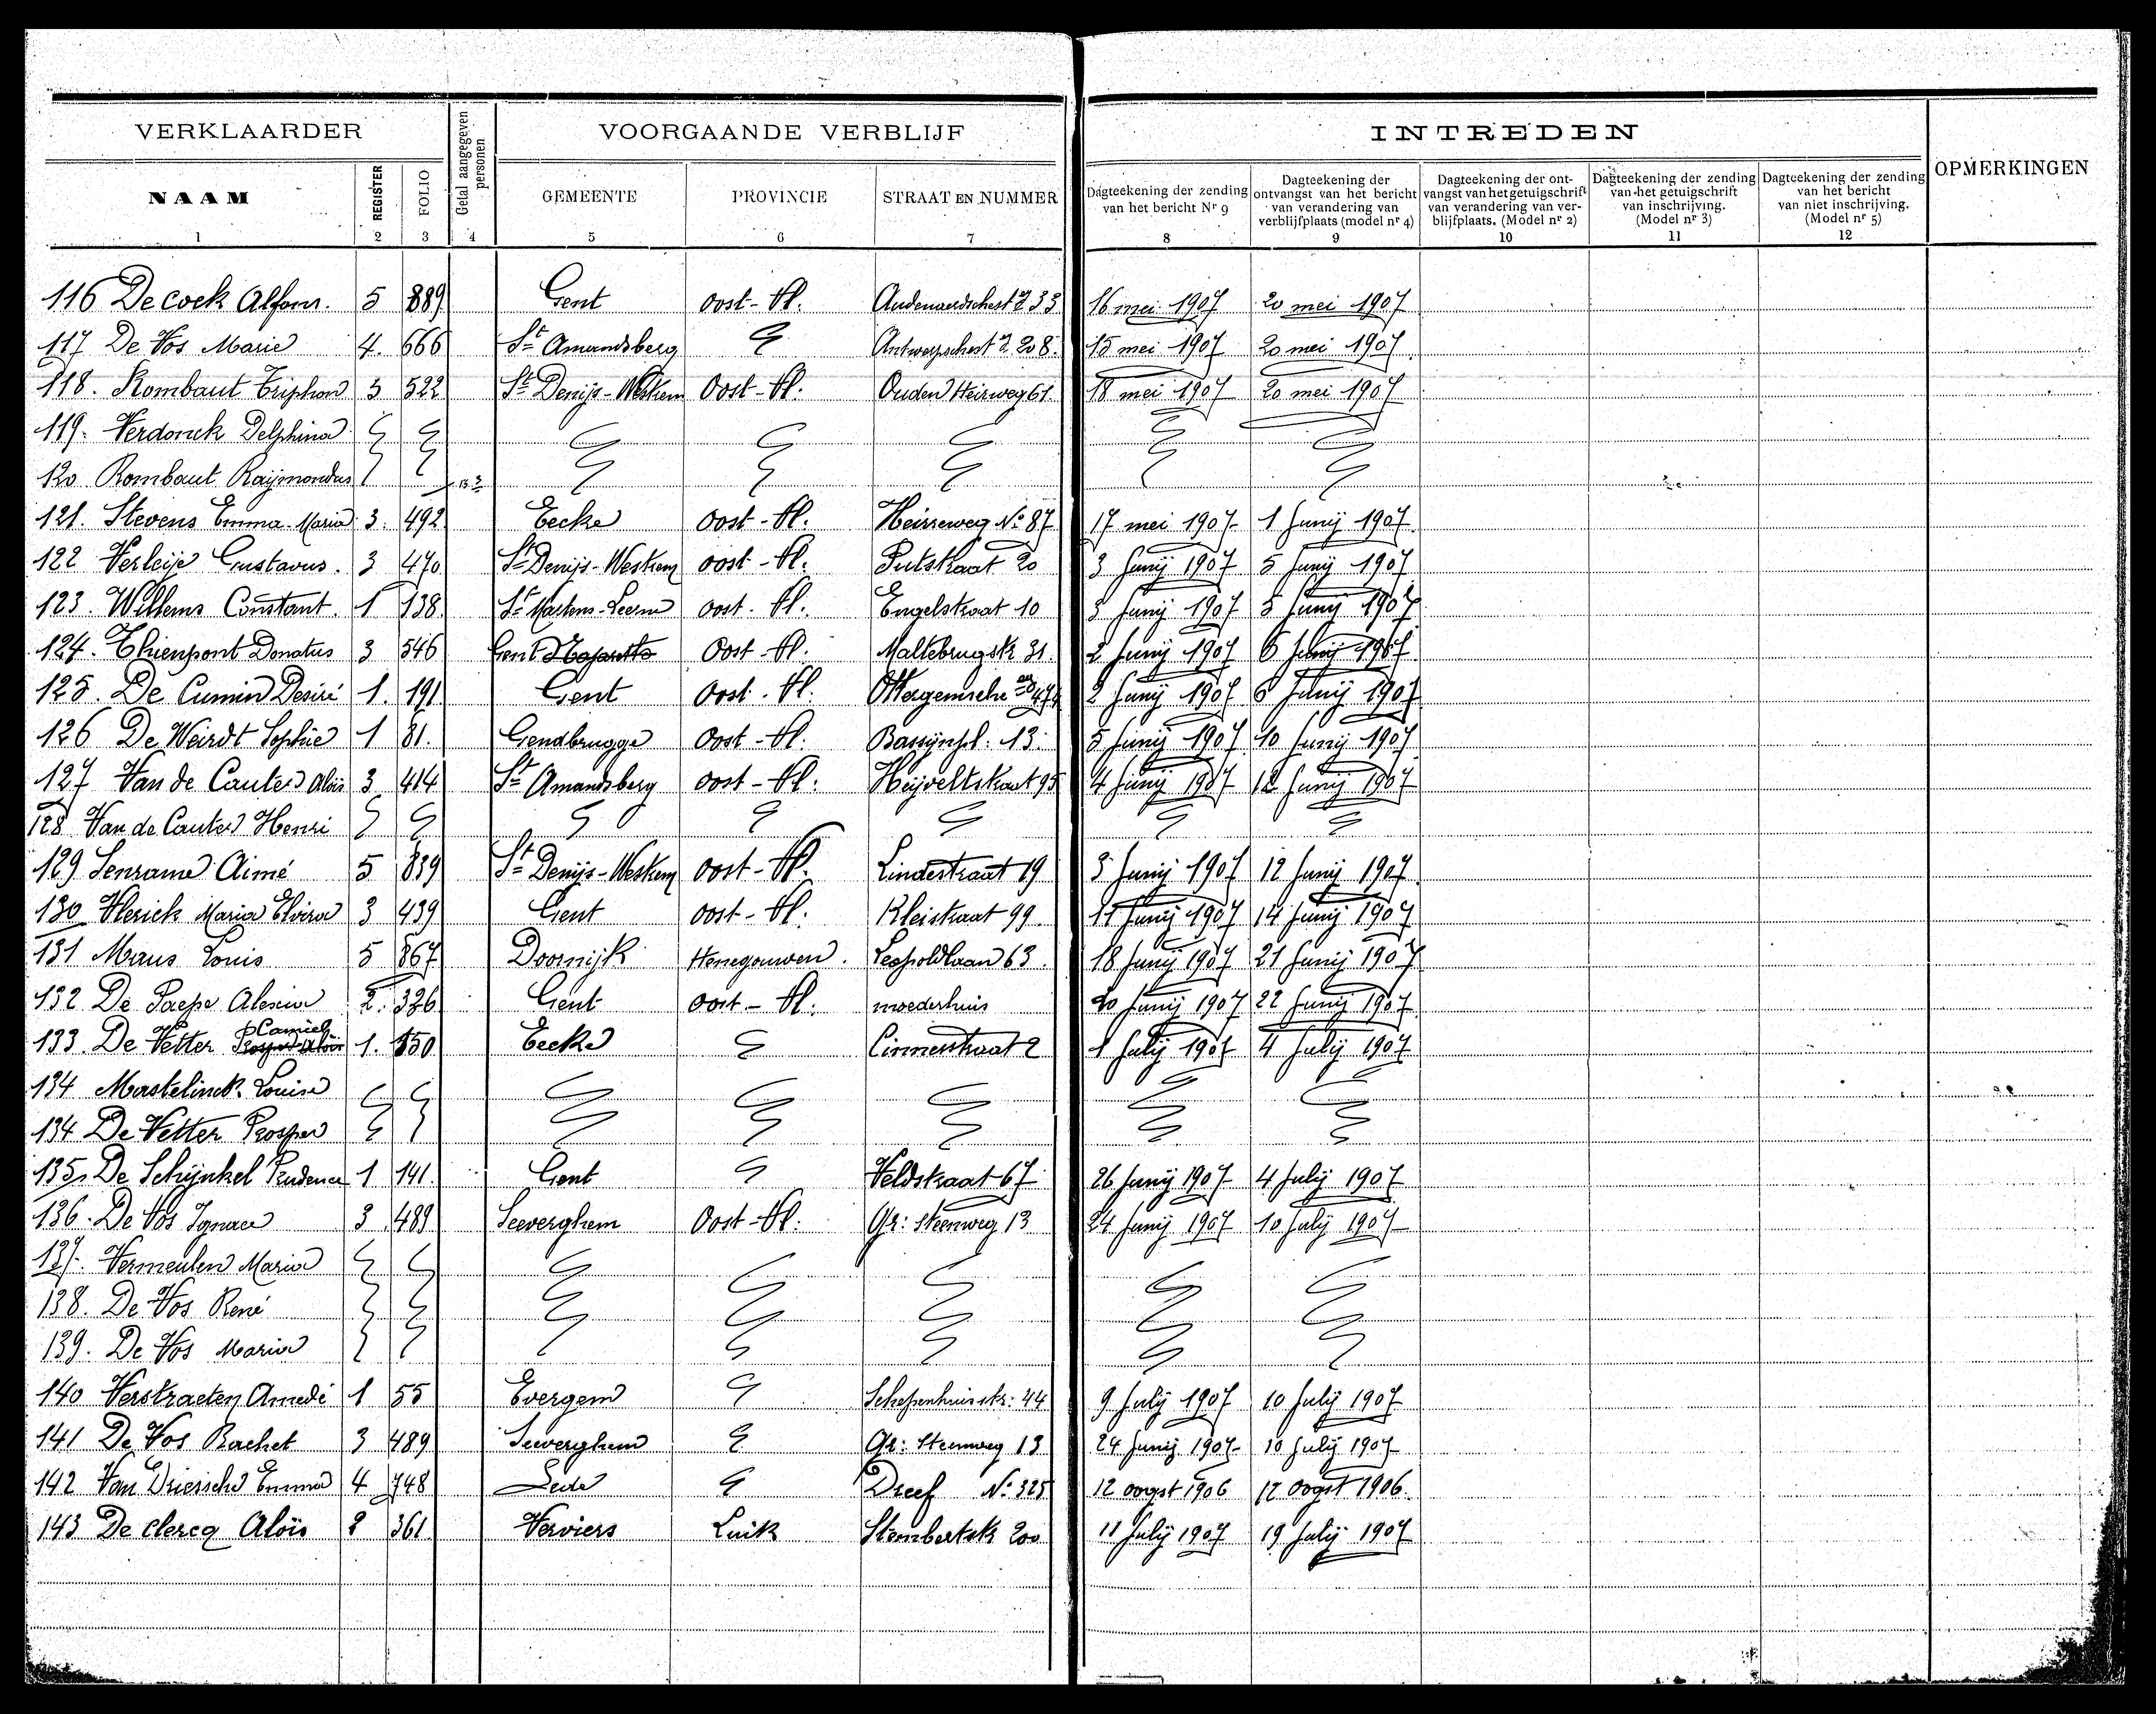 VERKLAARDER Getal aangegeven personen VOORGAANDE VERBLIJF INTREDEN OPMERKINGEN
NAAM REGISTER FOLIO GEMEENTE PROVINCIE STRAAT EN NUMMER Dagteekening der zending van het bericht Nr 9 Dagteekening der ontvangst van het bericht van verandering van verblijfplaats (model nr 4) Dagteekening der ontvangst van het getuigschrift van verandering van verblijfplaats. (Model nr 2) Dagteekening der zending van het getuigschrift van inschrijving. (Model nr 3) Dagteekening der zending van het bericht van niet inschrijving. (Model nr 5)
1 2 3 4 5 6 7 8 9 10 11 12
116 De Cock Alfons. 5 889 Gent Oost-Vl. 33 16 mei 1907 20 mei 1907
117 De Vos Marie 4. 666 St Amandsberg 208. 15 mei 1907 20 mei 1907
118. Rombaut Triphon 3 522 St Denijs-Westrem Oost-Vl. Ouden Heirweg 61. 18 mei 1907 20 mei 1907
119. Verdonck Delphina
120 Rombaut Raijmondus
121. Stevens Emma-Maria 3. 492 Eecke Oost-Vl. Heirreweg No 87 17 mei 1907 1 Junij 1907
122 Verleije Gustavus. 3 470 St Denijs-Westrem Oost-Vl. Putstraat 20 3 Junij 1907 5 Junij 1907
123. Willems Constant. 1 138 St Martens-Leerne Oost-Vl. Engelstraat 10 3 Junij 1907 5 Junij 1907
124. Thienpont Donatus 3 546 Gent Oost-Vl. Maltebrugstr 31. 2 Junij 1907 6 Junij 1907
125. De Cumin Desiré 1. 191 Gent Oost-Vl. 2 Junij 1907 6 Junij 1907
126 De Weirdt Sophie 1 81. Gendbrugge Oost-Vl. Bassijnpl: 13. 5 Junij 1907 10 Junij 1907
127 Van de Cauter Aloïs 3 414 St Amandsberg Oost-Vl: Heijveltstraat 95 4 Junij 1907 12 Junij 1907
128 Van de Cauter Henri
129 Senrame Aimé 5 839 St Denijs-Westrem Oost-Vl. Lindestraat 19 3 Junij 1907 12 Junij 1907
130 Vlerick Maria Elvira 3 439 Gent Oost-Vl: Kleistraat 99. 11 Junij 1907 14 Junij 1907
131 Maus Louis 5 867 Doornijk Henegouwen. Leopoldlaan 63. 18 Junij 1907 21 Junij 1907
132 De Paepe Alexina 2. 326 Gent Oost-Vl: moederhuis 20 Junij 1907 22 Junij 1907
133. De Vetter Camiel 1. 150 Eecke 2 1 Julij 1907 4 Julij 1907
134 Mastelinck Louise
134 De Vetter Prosper
135. De Schijnkel Prudence 1 141. Gent Veldstraat 67 26 Junij 1907 4 Julij 1907
136. De Vos Ignace 3 489 Seeverghem Oost-Vl: Gr: Steenweg 13 24 Junij 1907 10 Julij 1907
137. Vermeulen Maria
138. De Vos René
139. De Vos Maria
140 Verstraeten Amedé 1 55 Evergem Schepenhuisstr: 44 9 Julij 1907 10 Julij 1907
141 De Vos Rachel 3 489 Seeverghem Gr: Steenweg 13 24 Junij 1907 10 Julij 1907
142 Van Driessche Emma 4 748 Lede Dreef No 325 12 oogst 1906 17 oogst 1906.
143 De Clercq Aloïs 2 361 Verviers Luik Stembertstr 200 11 Julij 1907 19 Julij 1907